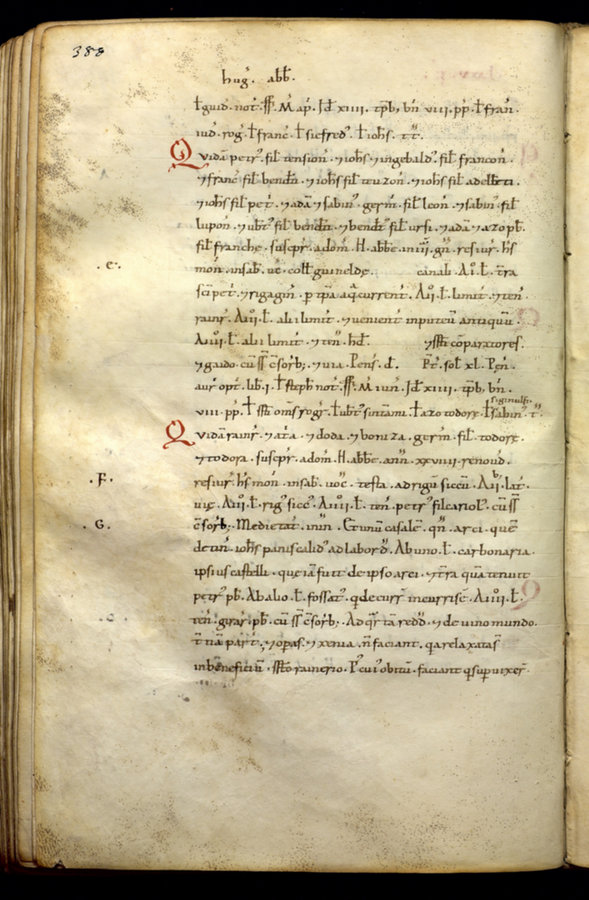 388
hug̃. abb̃.
ƚguid. not̃. ss̃. M ap̃. Id̃ xiiii. tp̃b, bñ viii. pp̃. ƚfrañ.
iud. rog̃. ƚfranc̃. ƚsicfred̃. ƚioh̃s. tt̃.
Quidã petr̃. fil̃ tension̄. ⁊ ioh̃s ⁊ ingebald̃. fil̃ francon̄.
⁊ franc̃ fil̃ bendict̃. ⁊ ioh̃s fil̃ teuzon̄. ⁊ ioh̃s fil̃ adelb̃ti.
⁊ ioh̃s fil̃ pet̃. ⁊ adã ⁊ sabin̄. germ̃. fil̃ leon̄. ⁊ sabin̄. fil̃
lupon̄. ⁊ ub̃t̃ fil̃ bendict̃. ⁊ bend̃t̃ fil̃ ursi. ⁊ adã ⁊ azo pb̃.
fil̃ franche. suscepr̃. a dom̃. H. abb̃e. in iiii. gñ. resiur̃. h̃s
.E. moñ. in sab̃. uc̃. coll̃ guinelde. canali. A ii. ƚ. t̃ra
sc̃i pet̃. ⁊ rigagiñ. p t̃pa aq̃ currenť. A iii. ƚ. limit̃. ⁊ teñ.
rainr̃. A iii. ƚ. alii limit̃. ⁊ uenient̃ in puteũ antiquũ.
A iiii. ƚ. alii limit̃. ⁊ teñ. hd̃. ⁊ ss̃ti cõparatores.
⁊ gaido. cũ ss̃ c̃sorb; ⁊ uia. Pens̃. d̃. P̃t̃. sol̃ xl. P̃eñ.
aur̃ opt̃. lib̃. i. ƚ steph̃ not̃. ss̃. M iuñ. Id̃ xiiii. tp̃b, bñ.
siginulfi.
viii. pp̃. ƚ ss̃ti om̃s rog̃r̃. ƚub̃t̃ sintami. ƚazo todore. ƚsabin̄. t̃.
Quidã rainr̃. ⁊ ata. ⁊ doda. ⁊ boniza. germ̃. fil̃ todore.
⁊ todora. suscepr̃. a dom̃. H. abb̃e. anñ. xxviiii. renoud̃.
.F. resiur̃. h̃s moñ. in sab̃. uoc̃. testa. ad rigũ siccũ. A ii. lat̃.
.G. uie. A iii. ƚ. rig̃ sicc̃. A iiii. ƚ. teñ. petr̃ filcariol̃. cũ ss̃
c̃sorb;. Medietat̃. in iuñ. Et unũ casalẽ. qñ. arci. quẽ
detiñ. ioh̃s paniscalid̃ ad laborð. Ab uno. ƚ. carbonaria.
ipsius castelli. que iã fuit de ipso arci. ⁊ t̃ra quã tenuit
petr̃ pb̃. Ab alio. ƚ. fossat̃. q̃ decurr̃ in currisẽ. A iiii. ƚ.
teñ. girar̃. pb̃. cũ ss̃ c̃sorb;. Ad q̃r̃tã redd̃. ⁊ de uino mundo.
t̃tiã part̃. ⁊ opas. ⁊ xenia. ñ faciant. q̃a relaxatas̃
in beneficiũ. ss̃to rainerio. P̃ cui̓ obitũ. faciant q̃ supuixer̃.